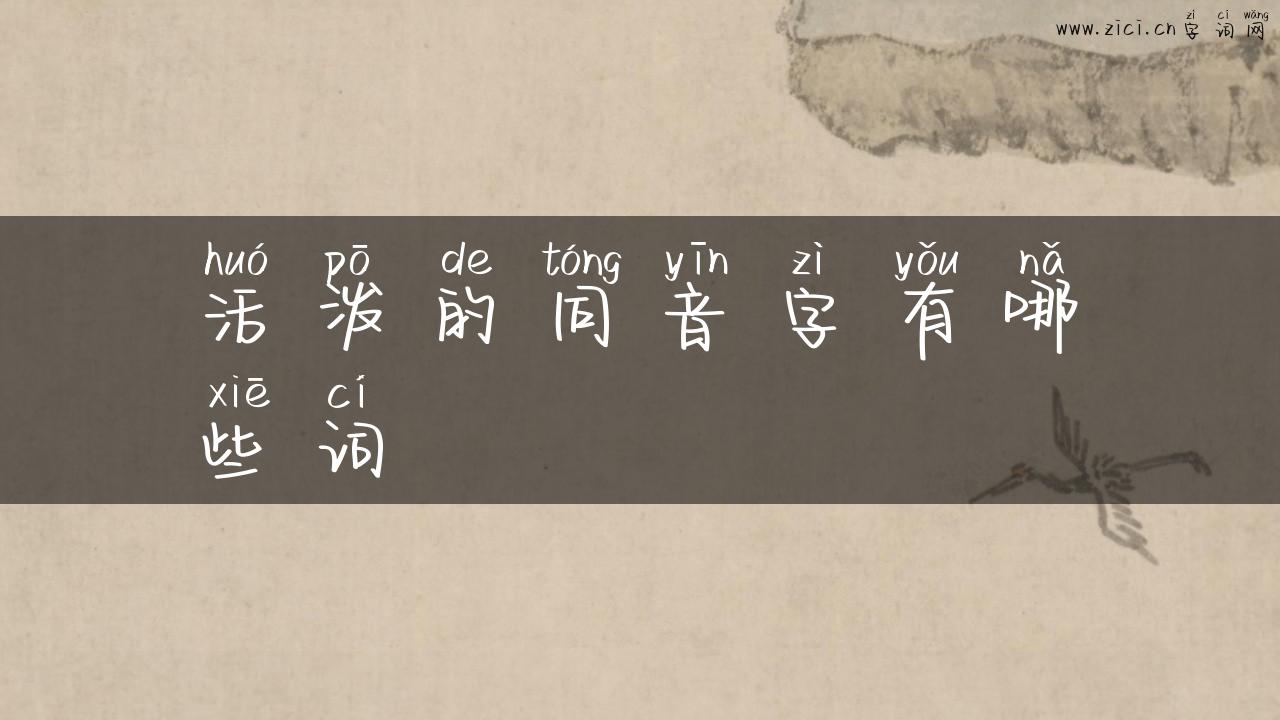 zì cí wǎng
www.zici.cn 字词网
huó pō de tóng yīn zì yǒu nǎ
活泼的同音字有哪
xiē cí
些词